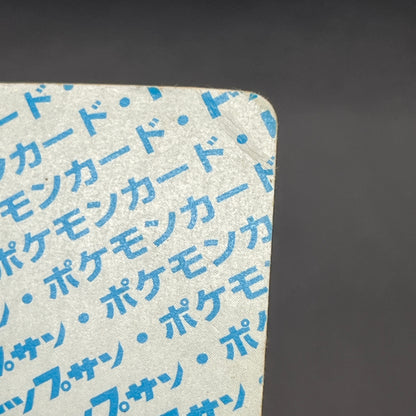 ード・
ンカード・
モンカード・
ポケモンカード・
・ポケモンカード
ン・ポケモンカ
プサン・ポケモ
ップサン・ポ
プサン・